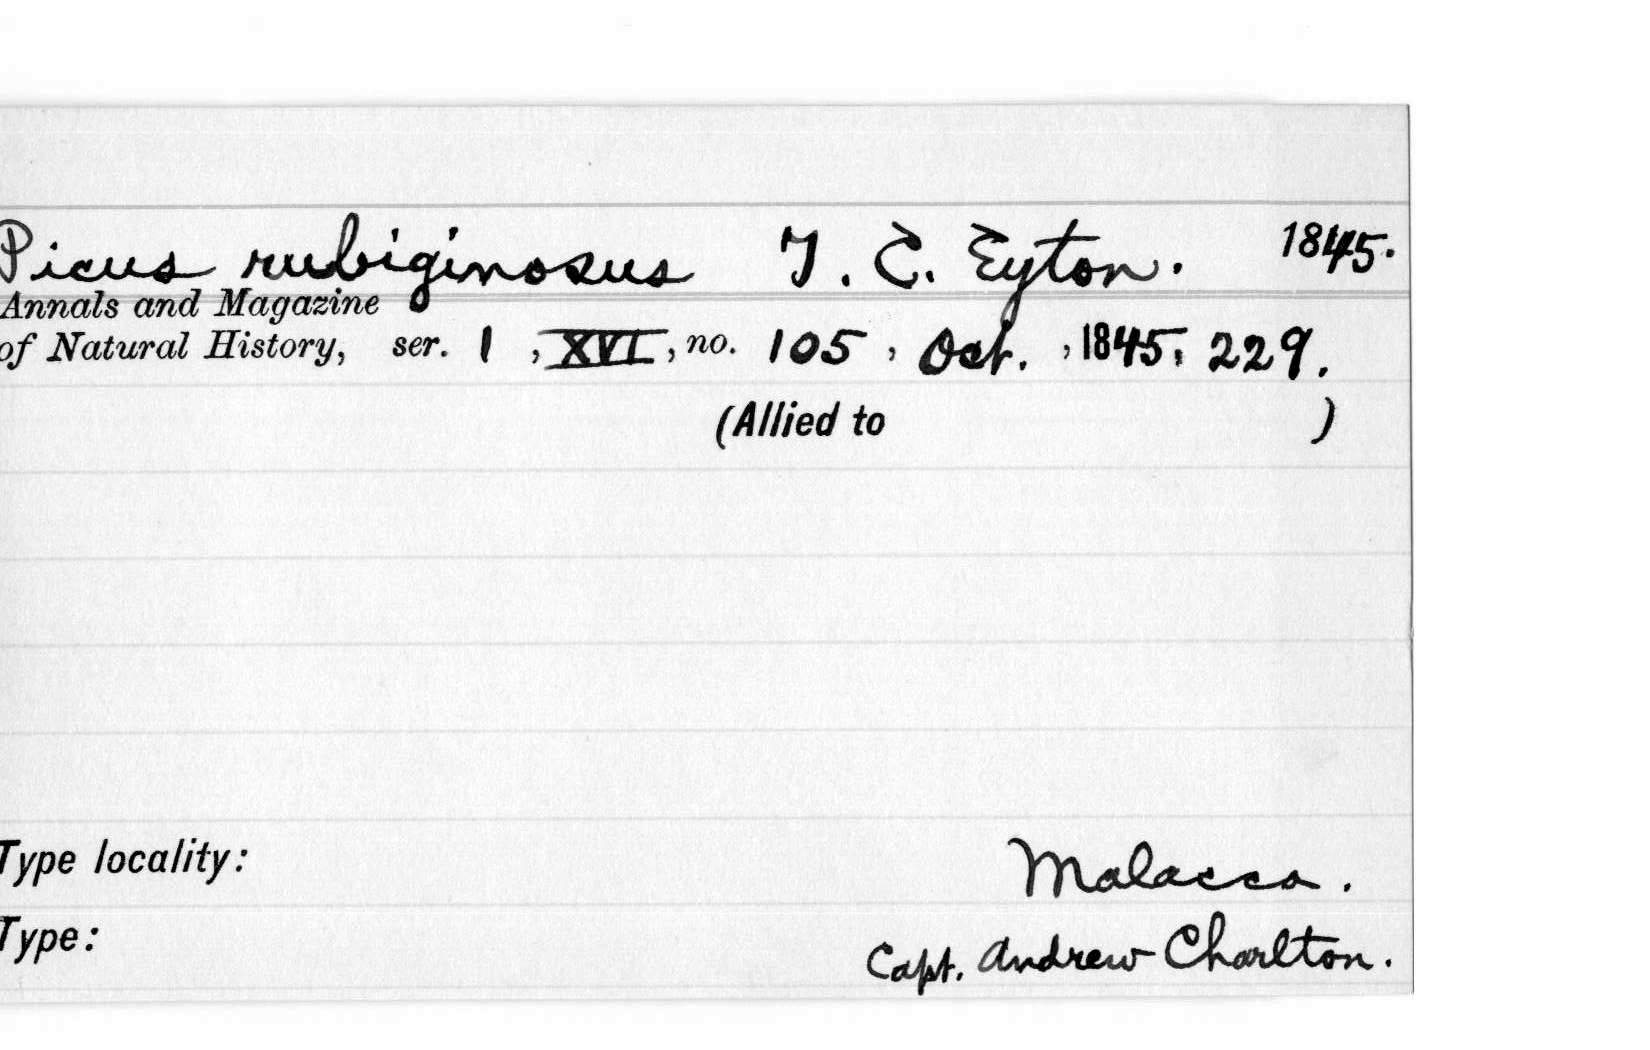 Picus rubiginosus T. C. Eyton. 1845.
Annals and Magazine
of Natural History, ser. 1, XVI, no. 105, Oct., 1845, 229.
(Allied to )
Type locality: Malacca.
Type: Capt. Andrew Charlton.